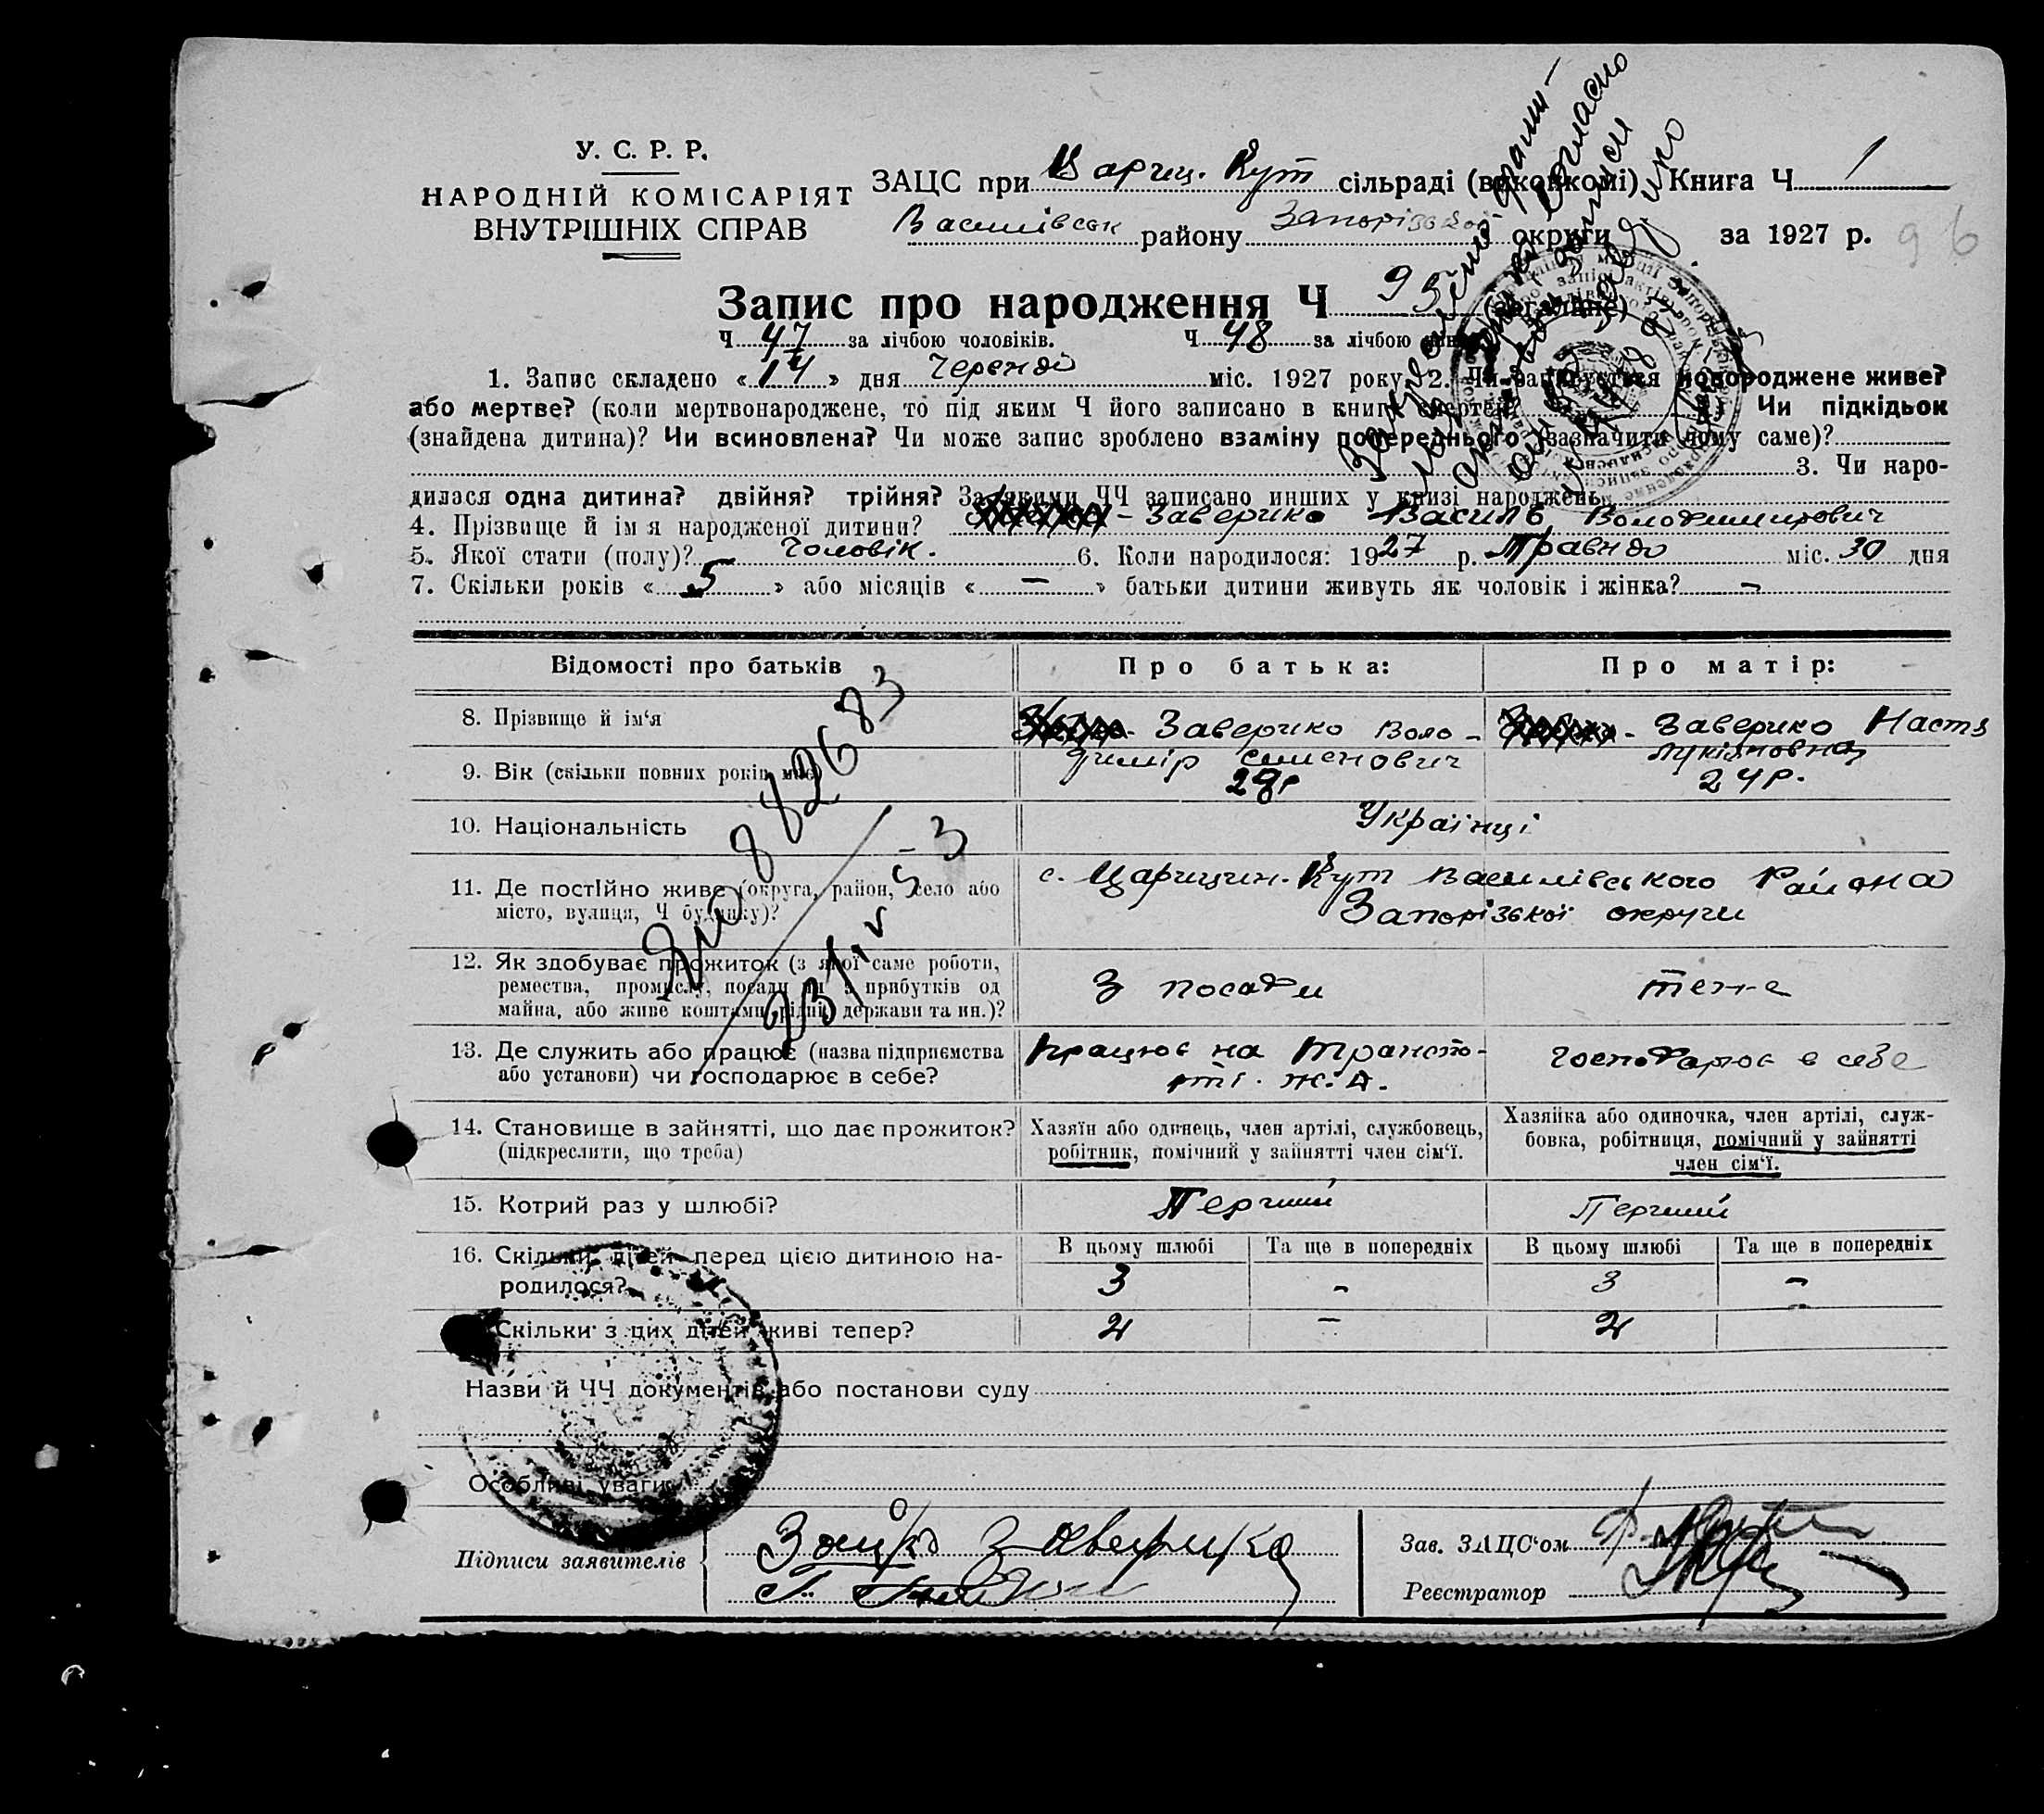 У. С. Р. Р.
НАРОДНІЙ КОМІСАРІЯТ
ВНУТРІШНІХ СПРАВ
ЗАЦС при Цариц. Кут сільраді (виконкомі) Книга Ч 1
Василівськ району Запорізької округи за 1927 р. 96
Запис про народження Ч 95 (загальне)
Ч 47 за лічбою чоловіків. Ч 48 за лічбою жінок
1. Запис складено « 14 » дня Червня міс. 1927 року. 2. Чи записується новороджене живе?
або мертве? (коли мертвонароджене, то під яким Ч його записано в книзі смертей) Чи підкідьок
(знайдена дитина)? Чи всиновлена? Чи може запис зроблено взаміну попереднього (зазначити чому саме)?
3. Чи наро-
дилася одна дитина? двійня? трійня? За якими ЧЧ записано инших у книзі народжень
4. Прізвище й ім я народженої дитини? - Заверико Василь Володимирович
5. Якої стати (полу)? Чоловік. 6. Коли народилося: 1927 р. Травня міс. 30 дня
7. Скільки років « 5 » або місяців « — » батьки дитини живуть як чоловік і жінка? -
Відомості про батьків
Про батька:
Про матір:
8. Прізвище й ім‘я
- Заверико Воло-
димір Семенович
- Заверико Настя
Лукіяновна
9. Вік (скільки повних років має)
28р
24р.
10. Національність
Українці
11. Де постійно живе (округа, район, село або
місто, вулиця, Ч будинку)?
с. Царицин. Кут Василівського Района
Запорізької округи
12. Як здобуває прожиток (з якої саме роботи,
ремества, промислу, посади чи з прибутків од
майна, або живе коштами рідні, держави та ин.)?
З посади
теж
13. Де служить або працює (назва підприємства
або установи) чи господарює в себе?
Працює на Транспо-
рті. Ж.Д.
господарює в себе
14. Становище в зайнятті, що дає прожиток?
(підкреслити, що треба)
Хазяїн або одинець, член артілі, службовець,
робітник, помічний у зайнятті член сім‘ї.
Хазяйка або одиночка, член артілі, служ-
бовка, робітниця, помічний у зайнятті
член сім‘ї.
15. Котрий раз у шлюбі?
Перший
Перший
16. Скільки дітей перед цією дитиною на-
родилося?
В цьому шлюбі
Та ще в попередніх
В цьому шлюбі
Та ще в попередніх
3 - 3 -
Скільки з цих дітей живі тепер?
2 - 2
882683
23/IV 53
Назви й ЧЧ документів або постанови суду
Особливі уваги
Підписи заявителів
Заверико
Зав. ЗАЦС‘ом
Реєстратор